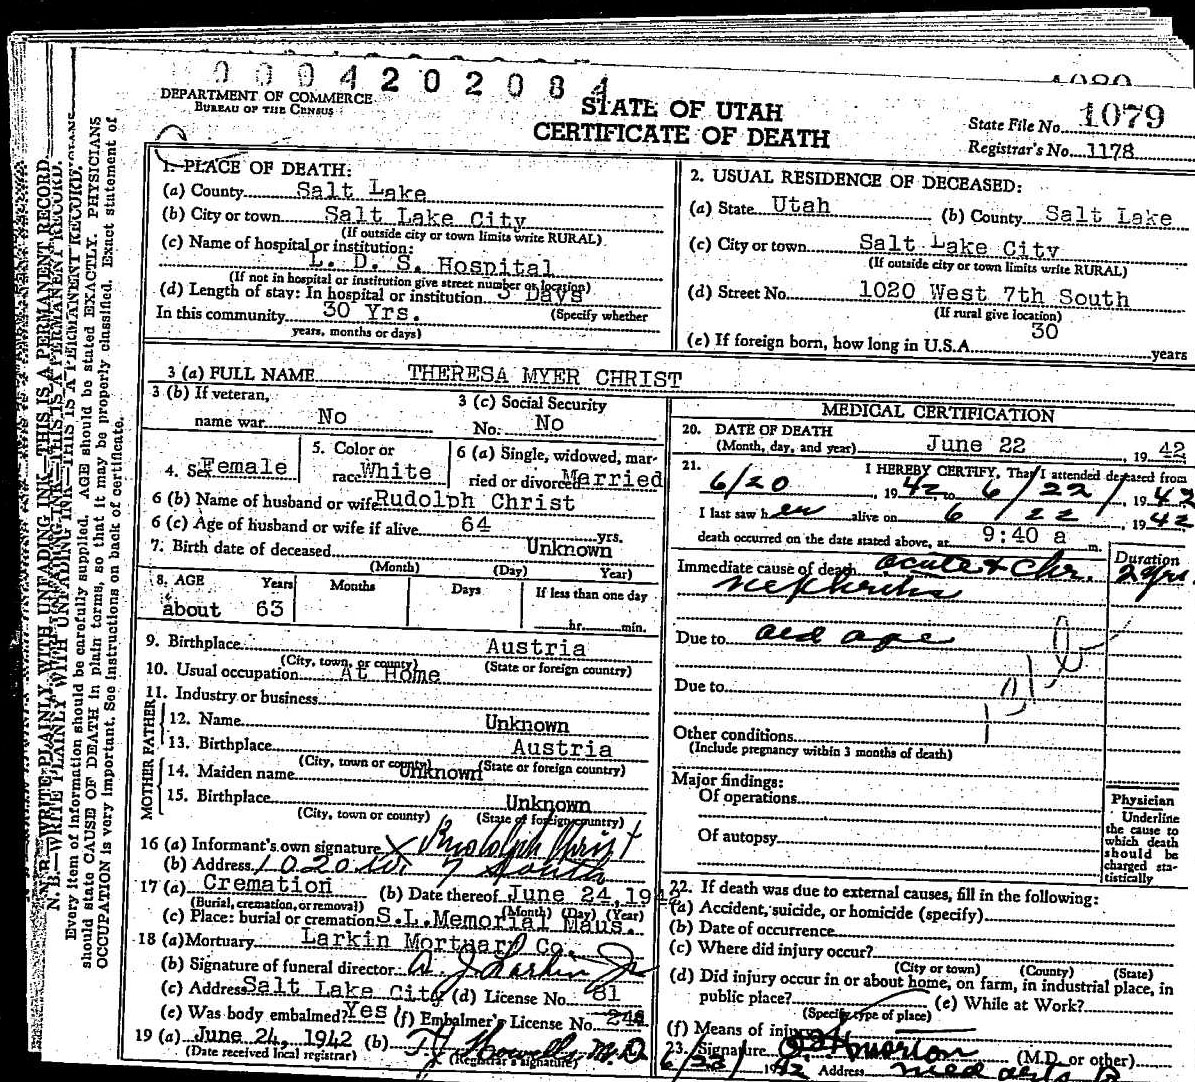 0004202084
1080
DEPARTMENT OF COMMERCE
BUREAU OF THE CENSUS
STATE OF UTAH
CERTIFICATE OF DEATH
State File No. 1079
Registrar's No. 1178
N. B.—WRITE PLAINLY WITH UNFADING INK—THIS IS A PERMANENT RECORD.
Every item of information should be carefully supplied. AGE should be stated EXACTLY. PHYSICIANS
should state CAUSE OF DEATH in plain terms, so that it may be properly classified. Exact statement of
OCCUPATION is very important. See instructions on back of certificate.
1. PLACE OF DEATH:
(a) County Salt Lake
(b) City or town Salt Lake City
(If outside city or town limits write RURAL)
(c) Name of hospital or institution:
L. D. S. Hospital
(If not in hospital or institution give street number or location)
(d) Length of stay: In hospital or institution 3 Days
In this community 30 Yrs. (Specify whether
years, months or days)
2. USUAL RESIDENCE OF DECEASED:
(a) State Utah (b) County Salt Lake
(c) City or town Salt Lake City
(If outside city or town limits write RURAL)
(d) Street No. 1020 West 7th South
(If rural give location)
(e) If foreign born, how long in U.S.A. 30 years
3 (a) FULL NAME THERESA MYER CHRIST
3 (b) If veteran,
name war No
3 (c) Social Security
No. No
4. Sex Female
5. Color or
race White
6 (a) Single, widowed, mar-
ried or divorced Married
6 (b) Name of husband or wife Rudolph Christ
6 (c) Age of husband or wife if alive 64 yrs.
7. Birth date of deceased Unknown
(Month) (Day) Year)
8. AGE Years Months Days If less than one day
about 63 hr. min.
9. Birthplace Austria
(City, town, or county) (State or foreign country)
10. Usual occupation At Home
11. Industry or business
FATHER
12. Name Unknown
13. Birthplace Austria
(City, town or county) (State or foreign country)
MOTHER
14. Maiden name Unknown
15. Birthplace Unknown
(City, town or county) (State or foreign country)
16 (a) Informant's own signature X Rudolph Christ
(b) Address 1020 W. 7 South
17 (a) Cremation (b) Date thereof June 24, 1942
(Burial, cremation, or removal) (Month) (Day) (Year)
(c) Place: burial or cremation S.L.Memorial Maus.
18 (a) Mortuary Larkin Mortuary Co.
(b) Signature of funeral director A J Larkin Jr
(c) Address Salt Lake City (d) License No. 81
(e) Was body embalmed? Yes (f) Embalmer's License No. 244
19 (a) June 24, 1942 (b) T J Howells, M.D.
(Date received local registrar) (Registrar's signature)
MEDICAL CERTIFICATION
20. DATE OF DEATH
(Month, day, and year) June 22, 1942
21. I HEREBY CERTIFY, That I attended deceased from
6/20, 1942 to 6/22/, 1942
I last saw her alive on 6 22 1942
death occurred on the date stated above, at 9:40 a m.
Immediate cause of death acute & Chr.
nephritis
Duration
2 yrs.
Due to old age
Due to
Other conditions
(Include pregnancy within 3 months of death)
Major findings:
Of operations
Of autopsy
Physician
Underline
the cause to
which death
should be
charged sta-
tistically
22. If death was due to external causes, fill in the following:
(a) Accident, suicide, or homicide (specify)
(b) Date of occurrence
(c) Where did injury occur?
(City or town) (County) (State)
(d) Did injury occur in or about home, on farm, in industrial place, in
public place? (e) While at Work?
(Specify type of place)
(f) Means of injury
23. Signature (M.D. or other)
6/23/1942 Address Med arts B